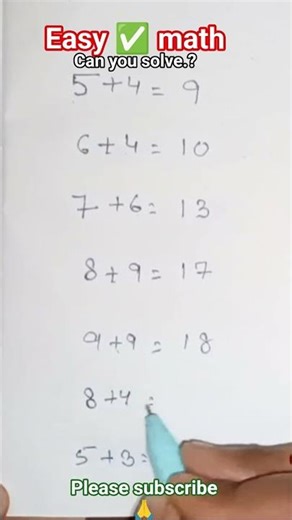 Easy ✅ math
Can you solve.?
5+4=9
6+4=10
7+6=13
8+9=17
9+9=18
8+4=
5+3=
Please subscribe
🙏